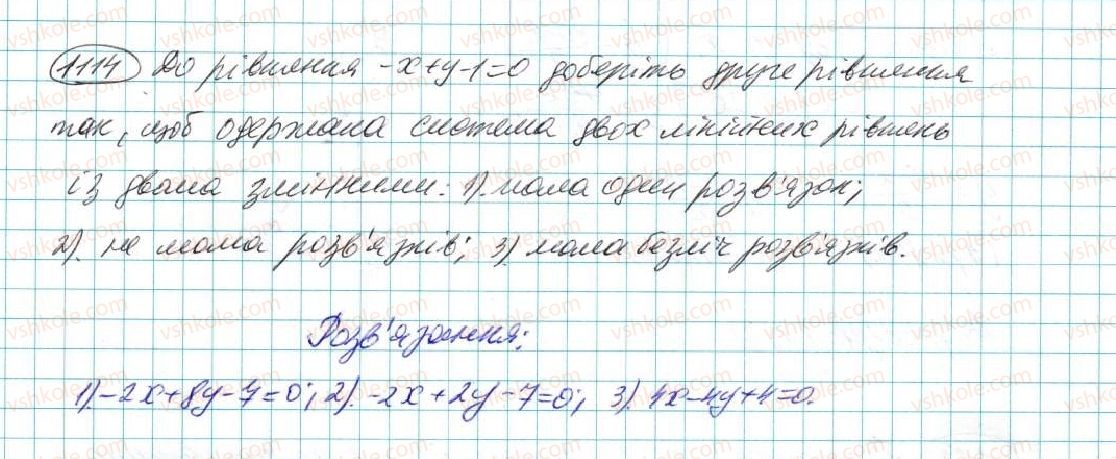 1114 До рівняння -x+y-1=0 доберіть друге рівняння
так, щоб одержана система двох лінійних рівнянь
із двома змінними: 1). мала один розв'язок;
2). не мала розв'язків; 3) мала безліч розв'язків.
Розв'язання:
1). -2x+8y-7=0; 2). -2x+2y-7=0; 3). 4x-4y+4=0.